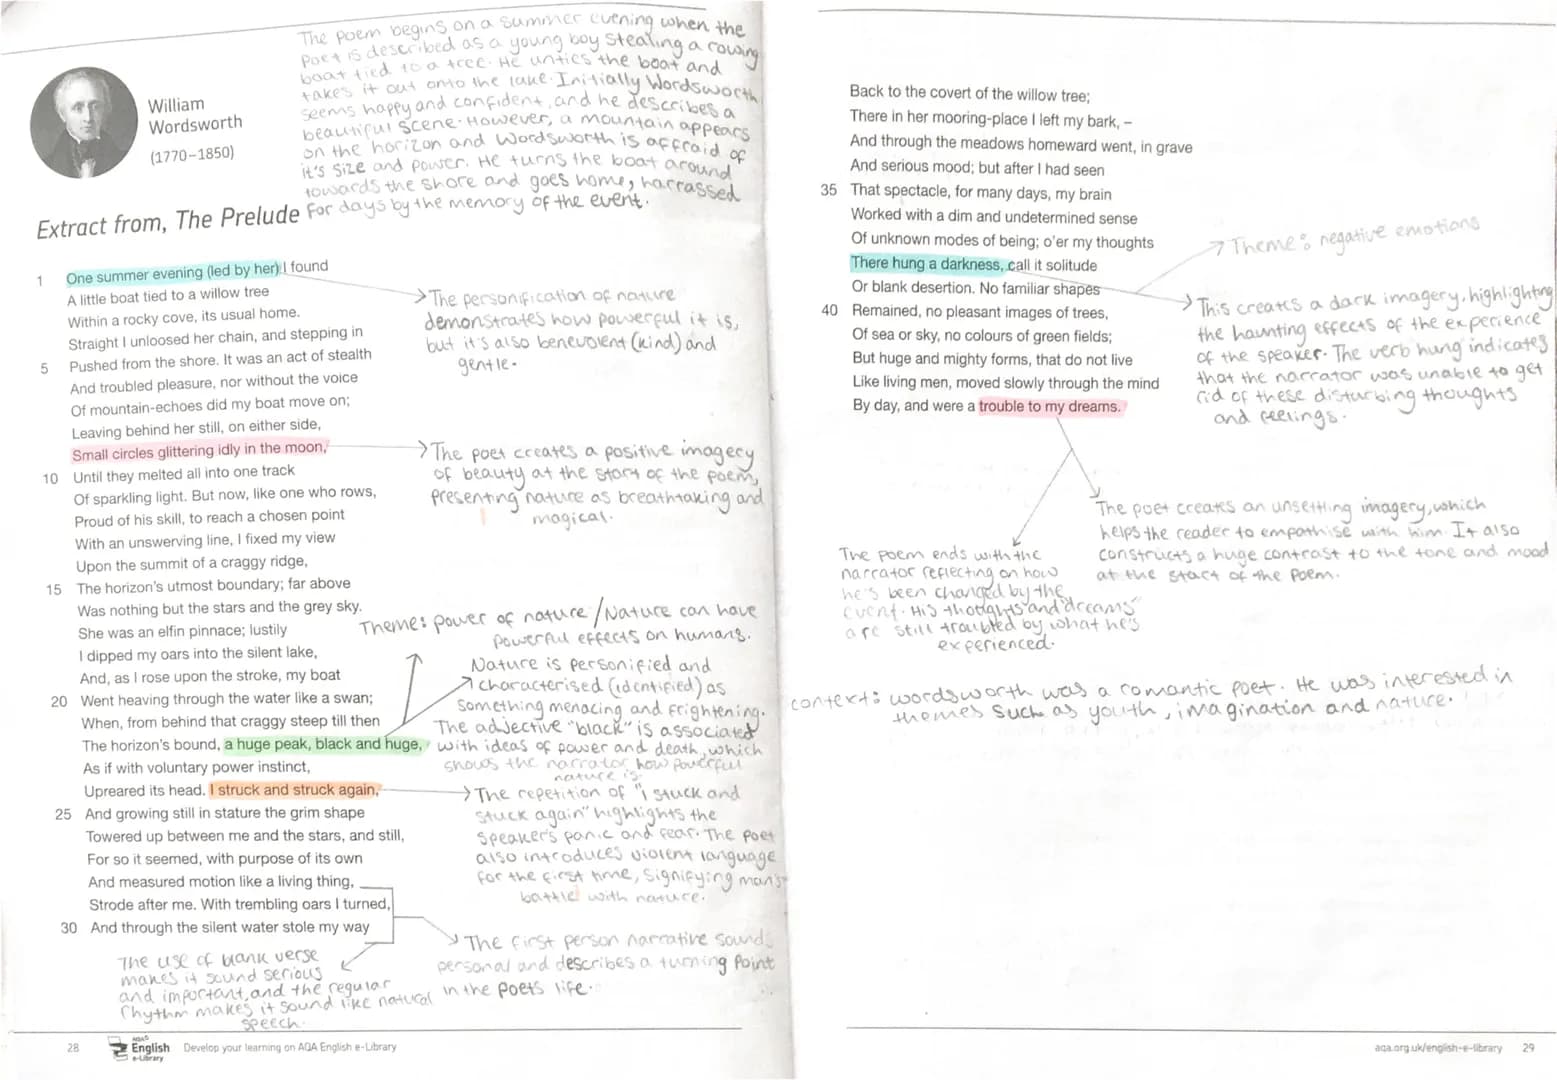 The poem begins on a summer evening when the
poet is described as a young boy stealing a rowing
boat tied to a tree. He unties the boat and
takes it out onto the lake. Initially Wordsworth
seems happy and confident, and he describes a
beautiful scene. However, a mountain appears
on the horizon and Wordsworth is affraid of
it's size and power. He turns the boat around
towards the shore and goes home, harrassed
for days by the memory of the event.
William
Wordsworth
(1770–1850)
Extract from, The Prelude
1 One summer evening (led by her) I found
A little boat tied to a willow tree
Within a rocky cove, its usual home.
Straight I unloosed her chain, and stepping in
5 Pushed from the shore. It was an act of stealth
And troubled pleasure, nor without the voice
Of mountain-echoes did my boat move on;
Leaving behind her still, on either side,
Small circles glittering idly in the moon,
10 Until they melted all into one track
Of sparkling light. But now, like one who rows,
Proud of his skill, to reach a chosen point
With an unswerving line, I fixed my view
Upon the summit of a craggy ridge,
15 The horizon's utmost boundary; far above
Was nothing but the stars and the grey sky.
She was an elfin pinnace; lustily
I dipped my oars into the silent lake,
And, as I rose upon the stroke, my boat
20 Went heaving through the water like a swan;
When, from behind that craggy steep till then
The horizon's bound, a huge peak, black and huge,
As if with voluntary power instinct,
Upreared its head. I struck and struck again,
25 And growing still in stature the grim shape
Towered up between me and the stars, and still,
For so it seemed, with purpose of its own
And measured motion like a living thing,
Strode after me. With trembling oars I turned,
30 And through the silent water stole my way
The personification of nature
demonstrates how powerful it is,
but it's also benevolent (kind) and
gentle.
The poet creates a positive imagery
of beauty at the start of the poem,
presenting nature as breathtaking and
magical.
Theme: power of nature / Nature can have
powerful effects on humans.
Nature is personified and
characterised (identified) as
something menacing and frightening.
The adjective "black" is associated
with ideas of power and death, which
shows the narrator how powerful
nature is.
The repetition of "i stuck and
stuck again" highlights the
speaker's panic and fear. The poet
also introduces violent language
for the first time, signifying man's
battle with nature.
The first person narrative sounds
personal and describes a turning point
in the poets life.
The use of blank verse
makes it sound serious
and important, and the regular
rhythm makes it sound like natural
speech.
28 AQA English e-Library Develop your learning on AQA English e-Library
Back to the covert of the willow tree;
There in her mooring-place I left my bark, –
And through the meadows homeward went, in grave
And serious mood; but after I had seen
35 That spectacle, for many days, my brain
Worked with a dim and undetermined sense
Of unknown modes of being; o'er my thoughts
There hung a darkness, call it solitude
Or blank desertion. No familiar shapes
40 Remained, no pleasant images of trees,
Of sea or sky, no colours of green fields;
But huge and mighty forms, that do not live
Like living men, moved slowly through the mind
By day, and were a trouble to my dreams.
Theme: negative emotions
This creates a dark imagery, highlighting
the haunting effects of the experience
of the speaker. The verb hung indicates
that the narrator was unable to get
rid of these disturbing thoughts
and feelings.
The poet creates an unsettling imagery, which
helps the reader to empathise with him. It also
constructs a huge contrast to the tone and mood
at the start of the poem.
The poem ends with the
narrator reflecting on how
he's been changed by the
event. His "thoughts and dreams"
are still troubled by what he's
experienced.
context: wordsworth was a romantic poet. He was interested in
themes such as youth, imagination and nature.
aqa.org.uk/english-e-library 29